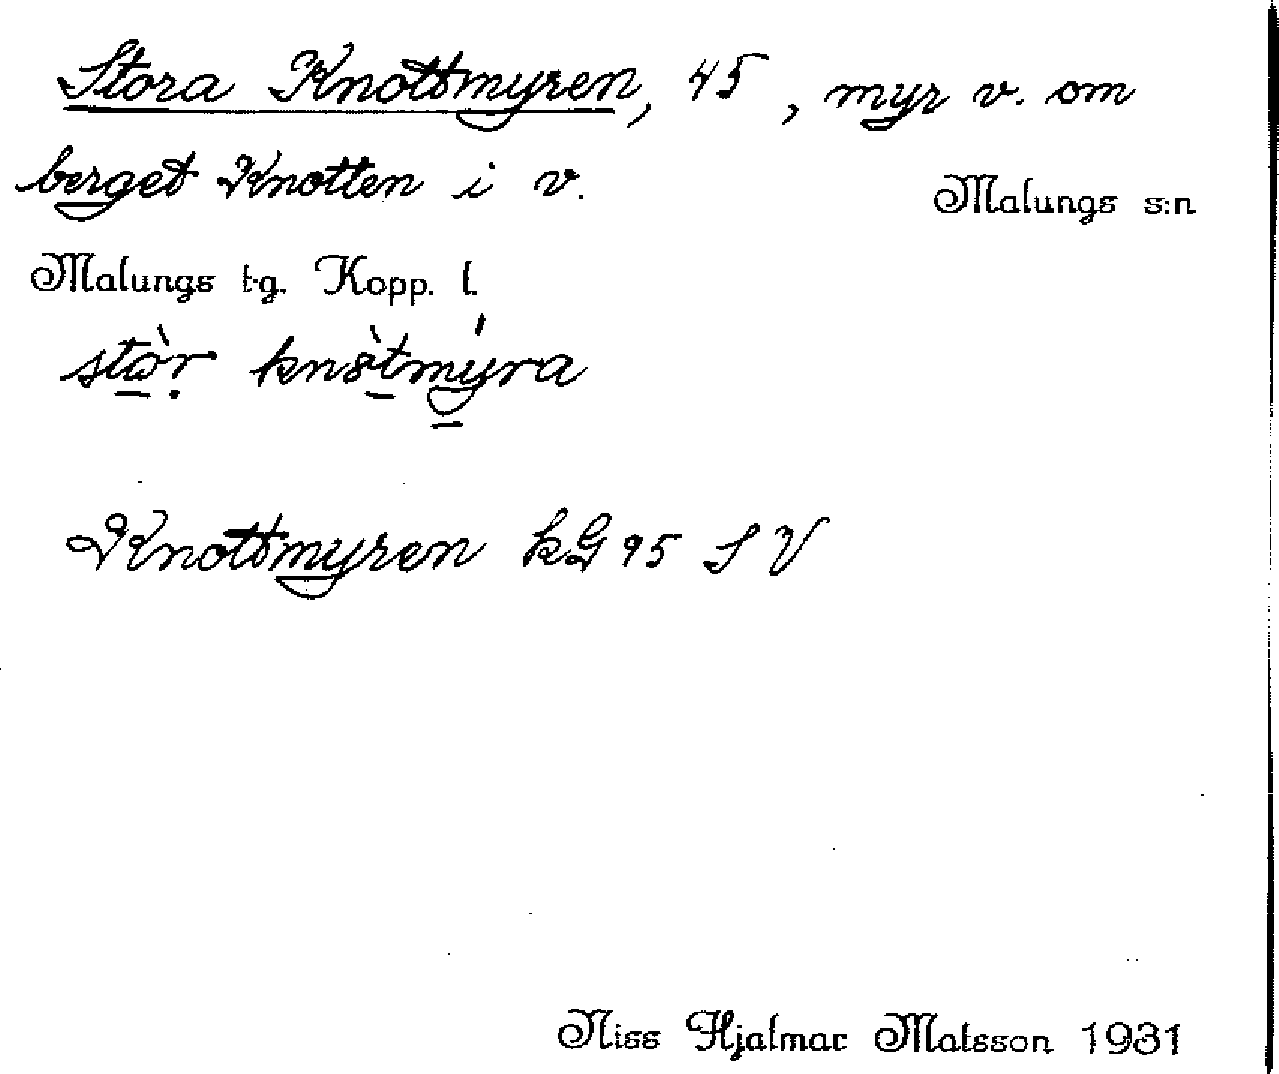 Stora Knottmyren, 45, myr v. om
berget Knotten i v.
Malungs s:n
Malungs tg. Kopp. l.
stòr knòtmýra
Knottmyren kG 95 S V
Niss Hjalmar Matsson 1931